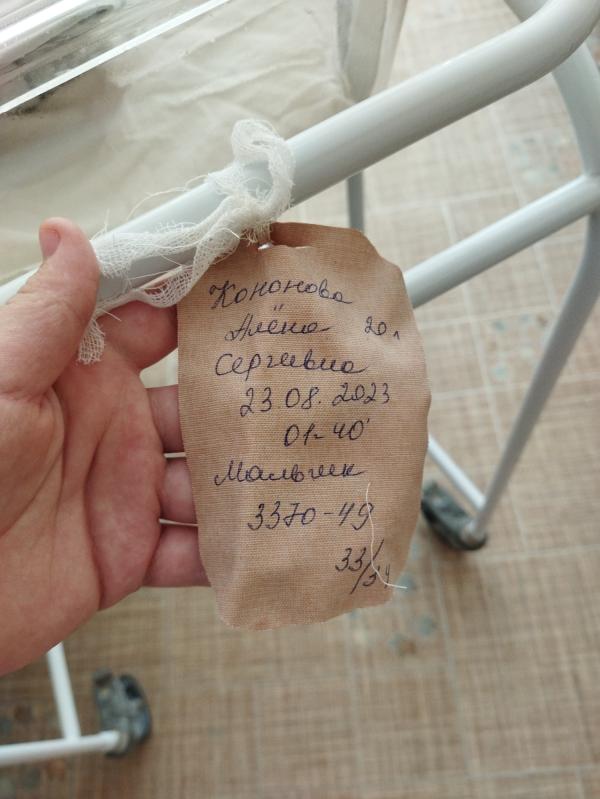 Кононова
Алёна 20 л
Сергевна
23 08. 2023
01-40'
Мальчик
3370-49
33/34